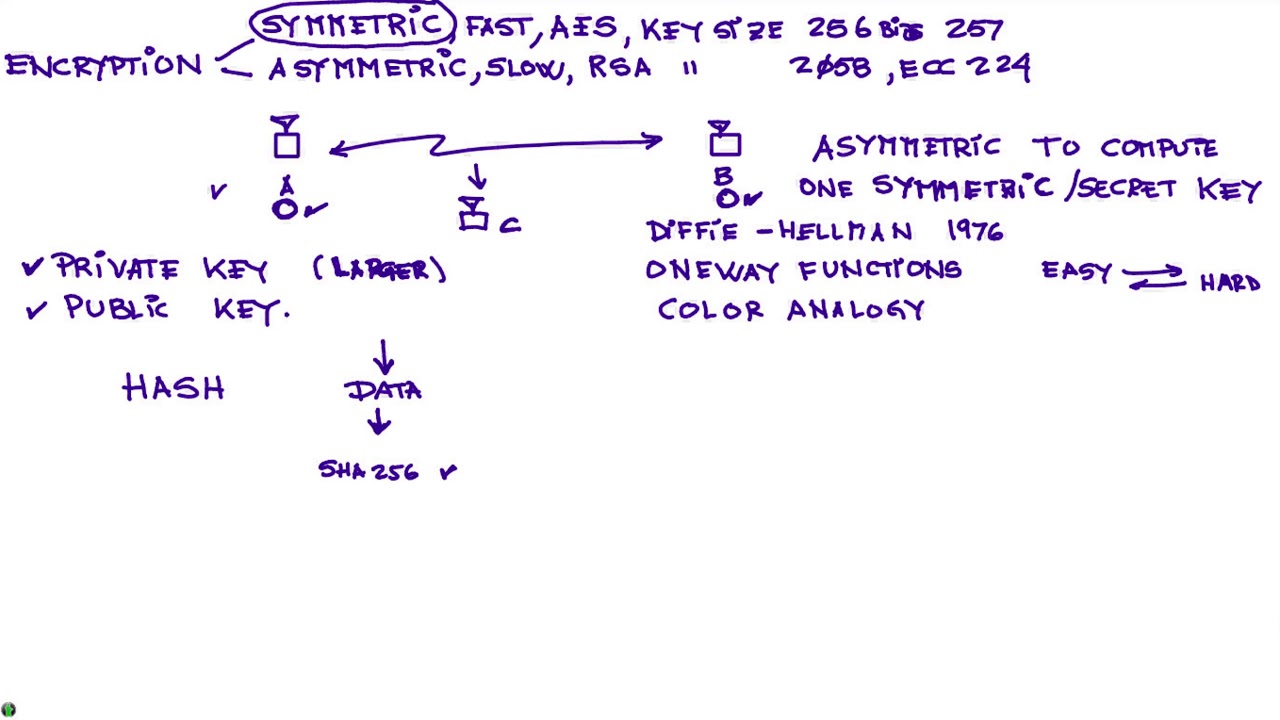 SYMMETRIC, FAST, AES, KEY SIZE 256 Bits 257
ENCRYPTION
ASYMMETRIC, SLOW, RSA " 2058, ECC 224
A
B
C
ASYMMETRIC TO COMPUTE
ONE SYMMETRIC/SECRET KEY
DIFFIE-HELLMAN 1976
✓ PRIVATE KEY (LARGER)
ONEWAY FUNCTIONS EASY HARD
✓ PUBLIC KEY.
COLOR ANALOGY
HASH DATA
SHA256 ✓